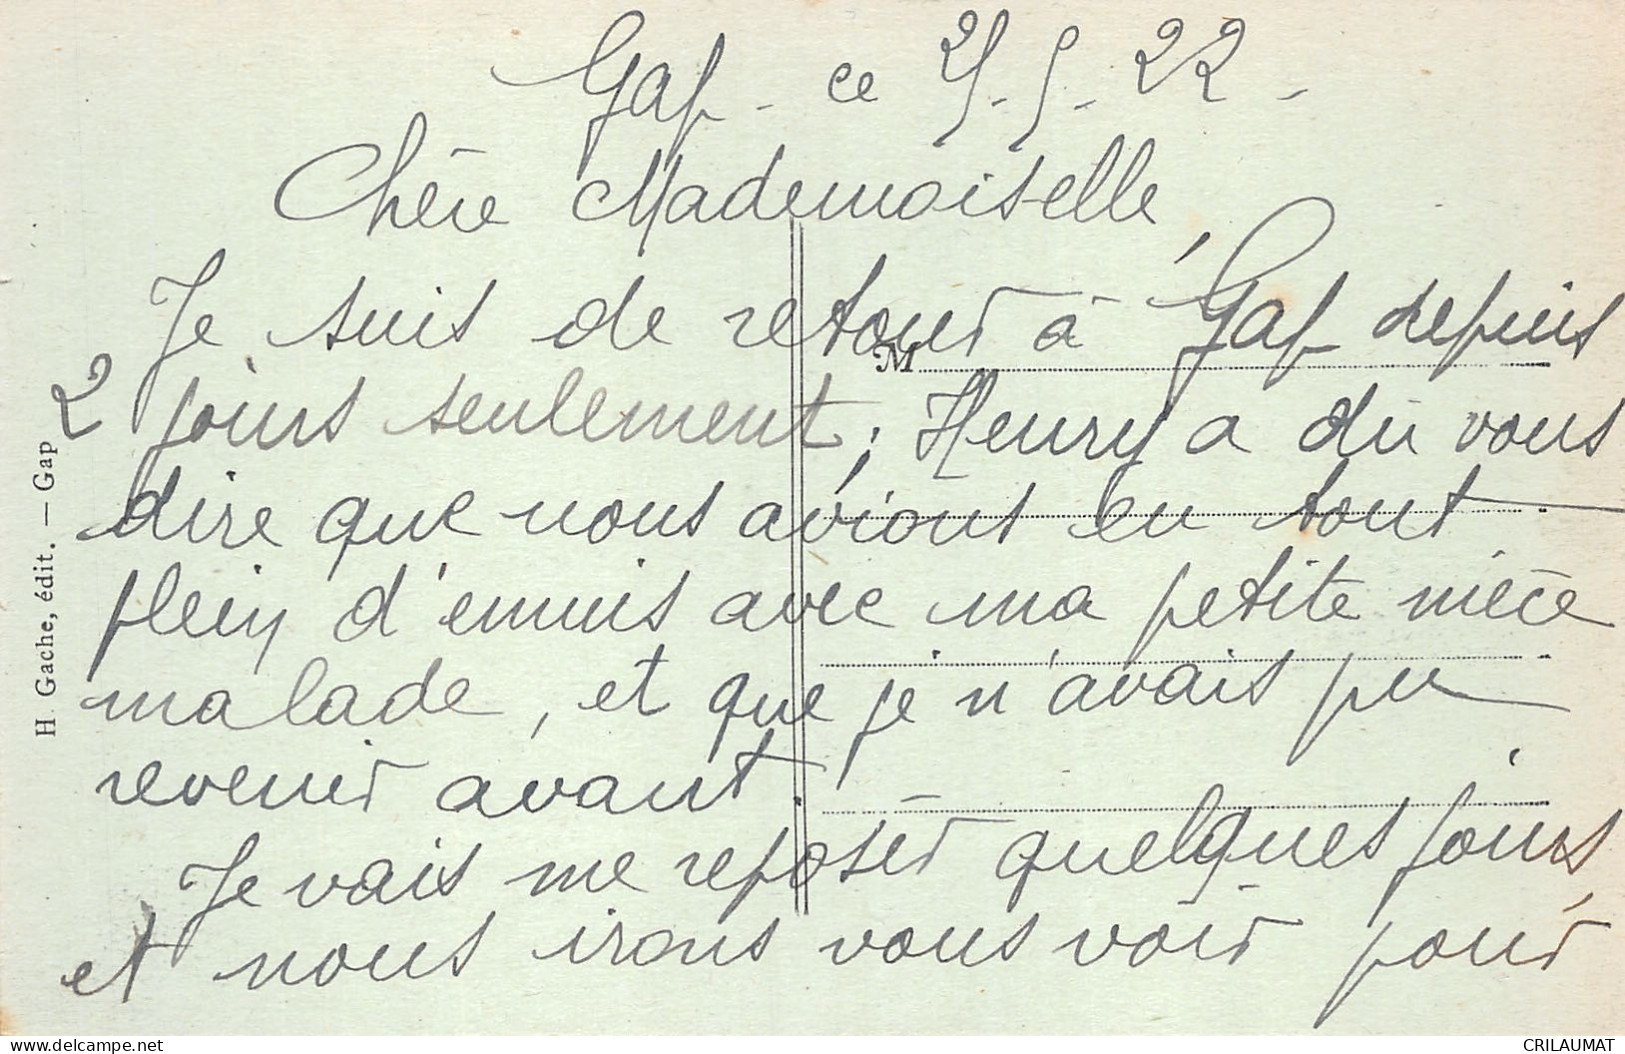 Gap - ce 25-5-22-
Chère Mademoiselle,
Je suis de retour à Gap depuis
2 jours seulement, Henry a dû vous
dire que nous avions eu tout
plein d'ennuis avec ma petite nièce
malade, et que je n'avais pu
revenir avant.
Je vais me reposer quelques jours,
et nous irons vous voir pour
M
H. Gache, édit. — Gap
https://www.delcampe.net
CRILAUMAT